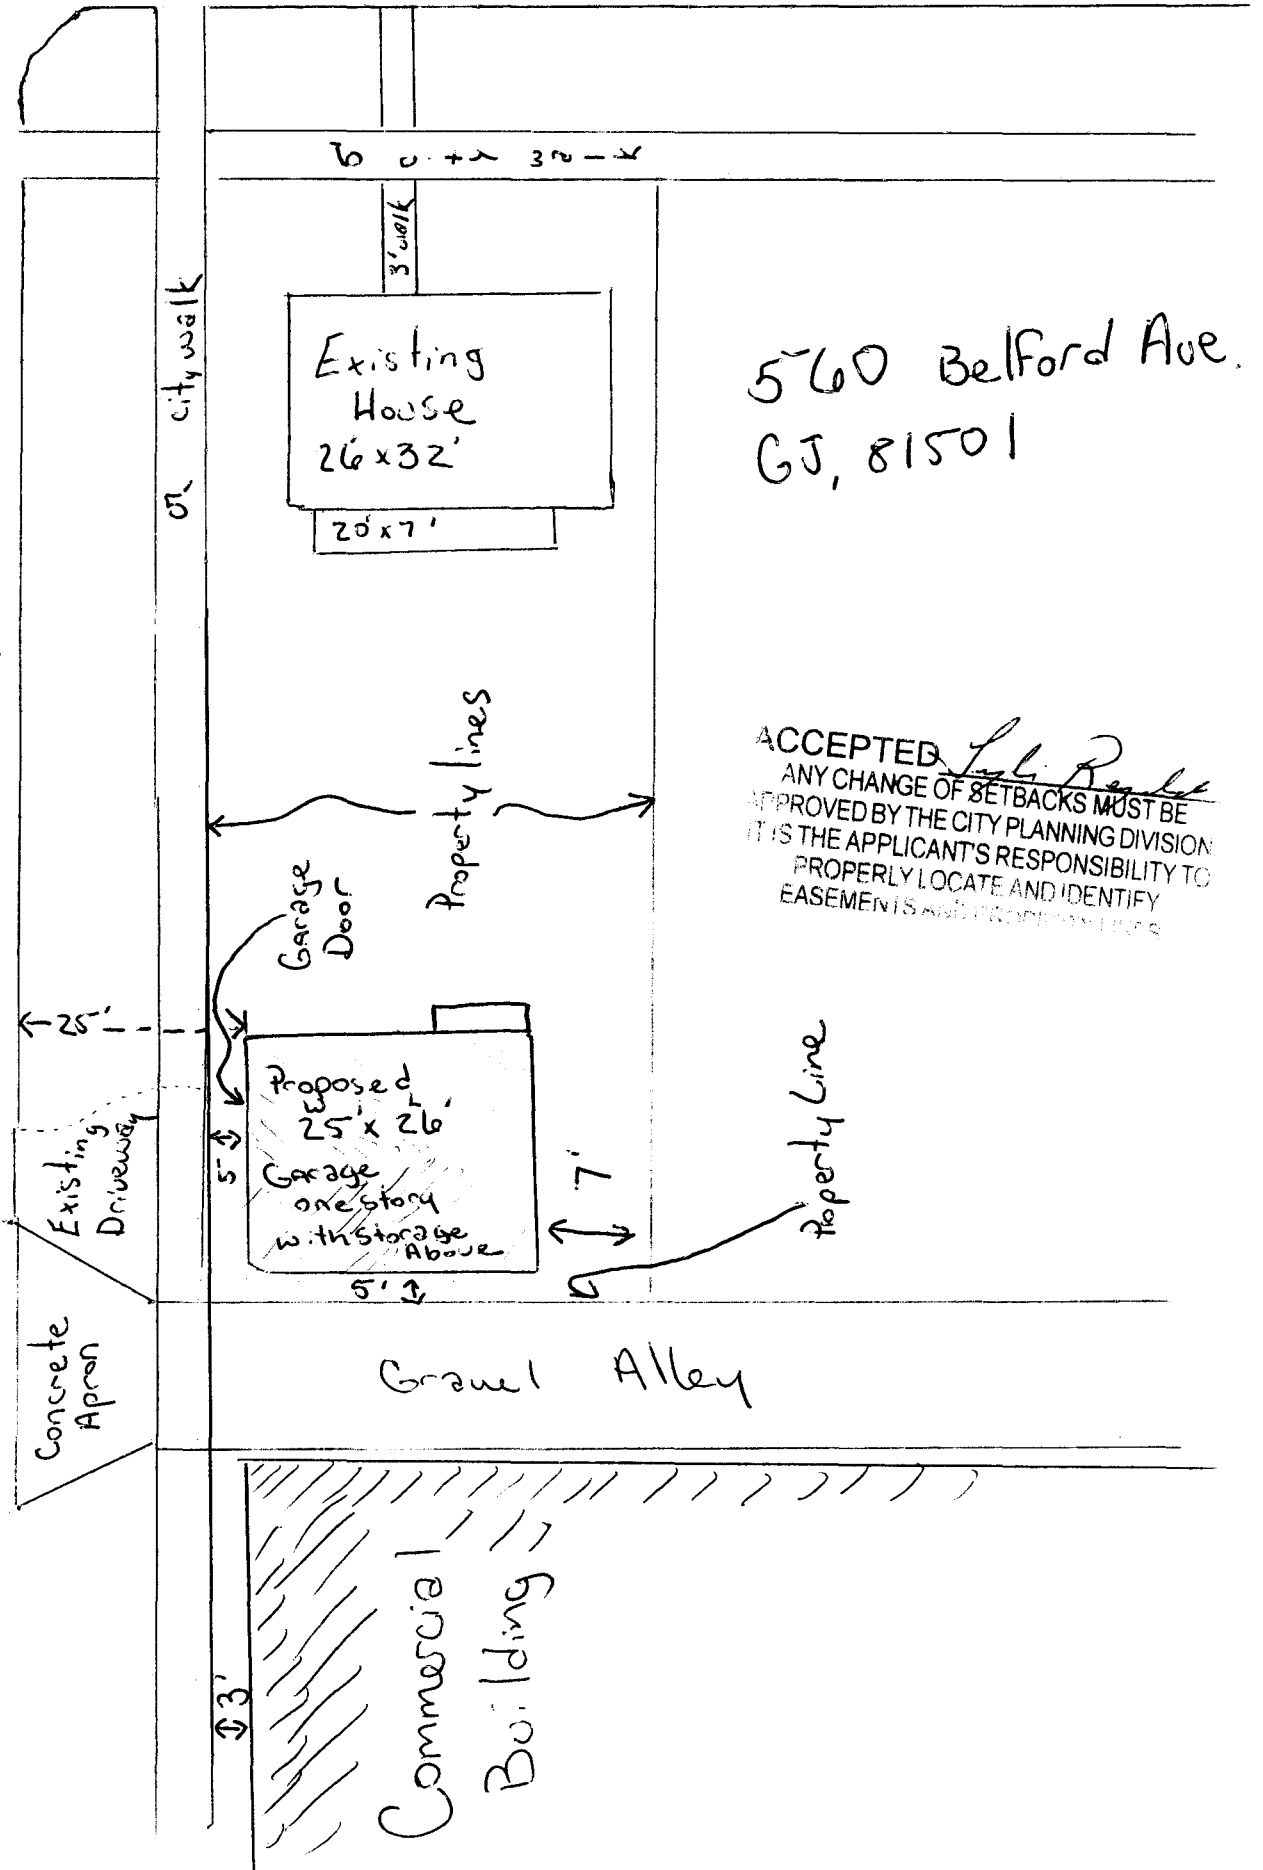 5' city walk
3' walk
5' city walk
Existing
House
26' x 32'
20' x 7'
560 Belford Ave.
GJ, 81501
Property lines
ACCEPTED
ANY CHANGE OF SETBACKS MUST BE
APPROVED BY THE CITY PLANNING DIVISION
IT IS THE APPLICANT'S RESPONSIBILITY TO
PROPERLY LOCATE AND IDENTIFY
EASEMENTS AND PROPERTY LINES
Garage
Door
25'
Proposed
25' x 26'
Garage
one story
with storage
Above
5'
7'
5'
Property Line
Existing
Driveway
Concrete
Apron
Gravel Alley
3'
Commercial
Building